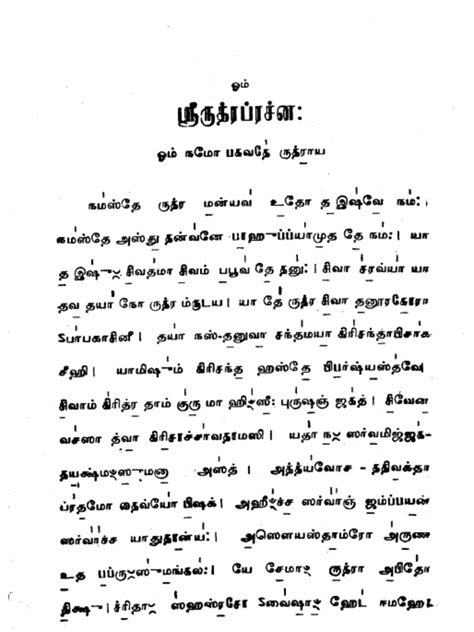 ஓம்
ஸ்ரீருத்ரப்ரச்ன:
ஓம் நமோ பகவதே ருத்ராய
நமஸ்தே ருத்ர மன்யவ உதோ த இஷ்வே நம:।
நமஸ்தே அஸ்து தன்வனே பாஹுப்ப்யாமுத தே நம:। யா
த இஷு: சிவதமா சிவம் பபூவ தே தனு:। சிவா சரவ்யா யா
தவ தயா நோ ருத்ர ம்ருடய। யா தே ருத்ர சிவா தனூரகோரா
ऽபாபகாசினீ। தயா நஸ்-தனுவா சந்தமயா கிரிசந்தாபிசாக
சீஹி। யாமிஷும் கிரிசந்த ஹஸ்தே பிபர்ஷ்யஸ்தவே।
சிவாம் கிரித்ர தாம் குரு மா ஹிꣳஸீ: புருஷஞ் ஜகத்। சிவேன
வசஸா த்வா கிரிசாச்சாவதாமஸி। யதா ந: ஸர்வமிஜ்ஜக-
தயக்ஷ்மꣳஸுமனா அஸத்। அத்த்யவோச - ததிவக்தா
ப்ரதமோ தைவ்யோ பிஷக்। அஹீꣳச்ச ஸர்வாஞ் ஜம்ப்பயன்
ஸர்வாச்ச யாதுதான்ய:। அஸௌயஸ்தாம்ரோ அருண
உத பப்ரு:ஸுமங்கல:। யே சேமாꣳ ருத்ரா அபிதோ
திக்ஷு। ச்ரிதா: ஸஹஸ்ரசோ ऽவைஷாꣳ ஹேட ஈமஹே।